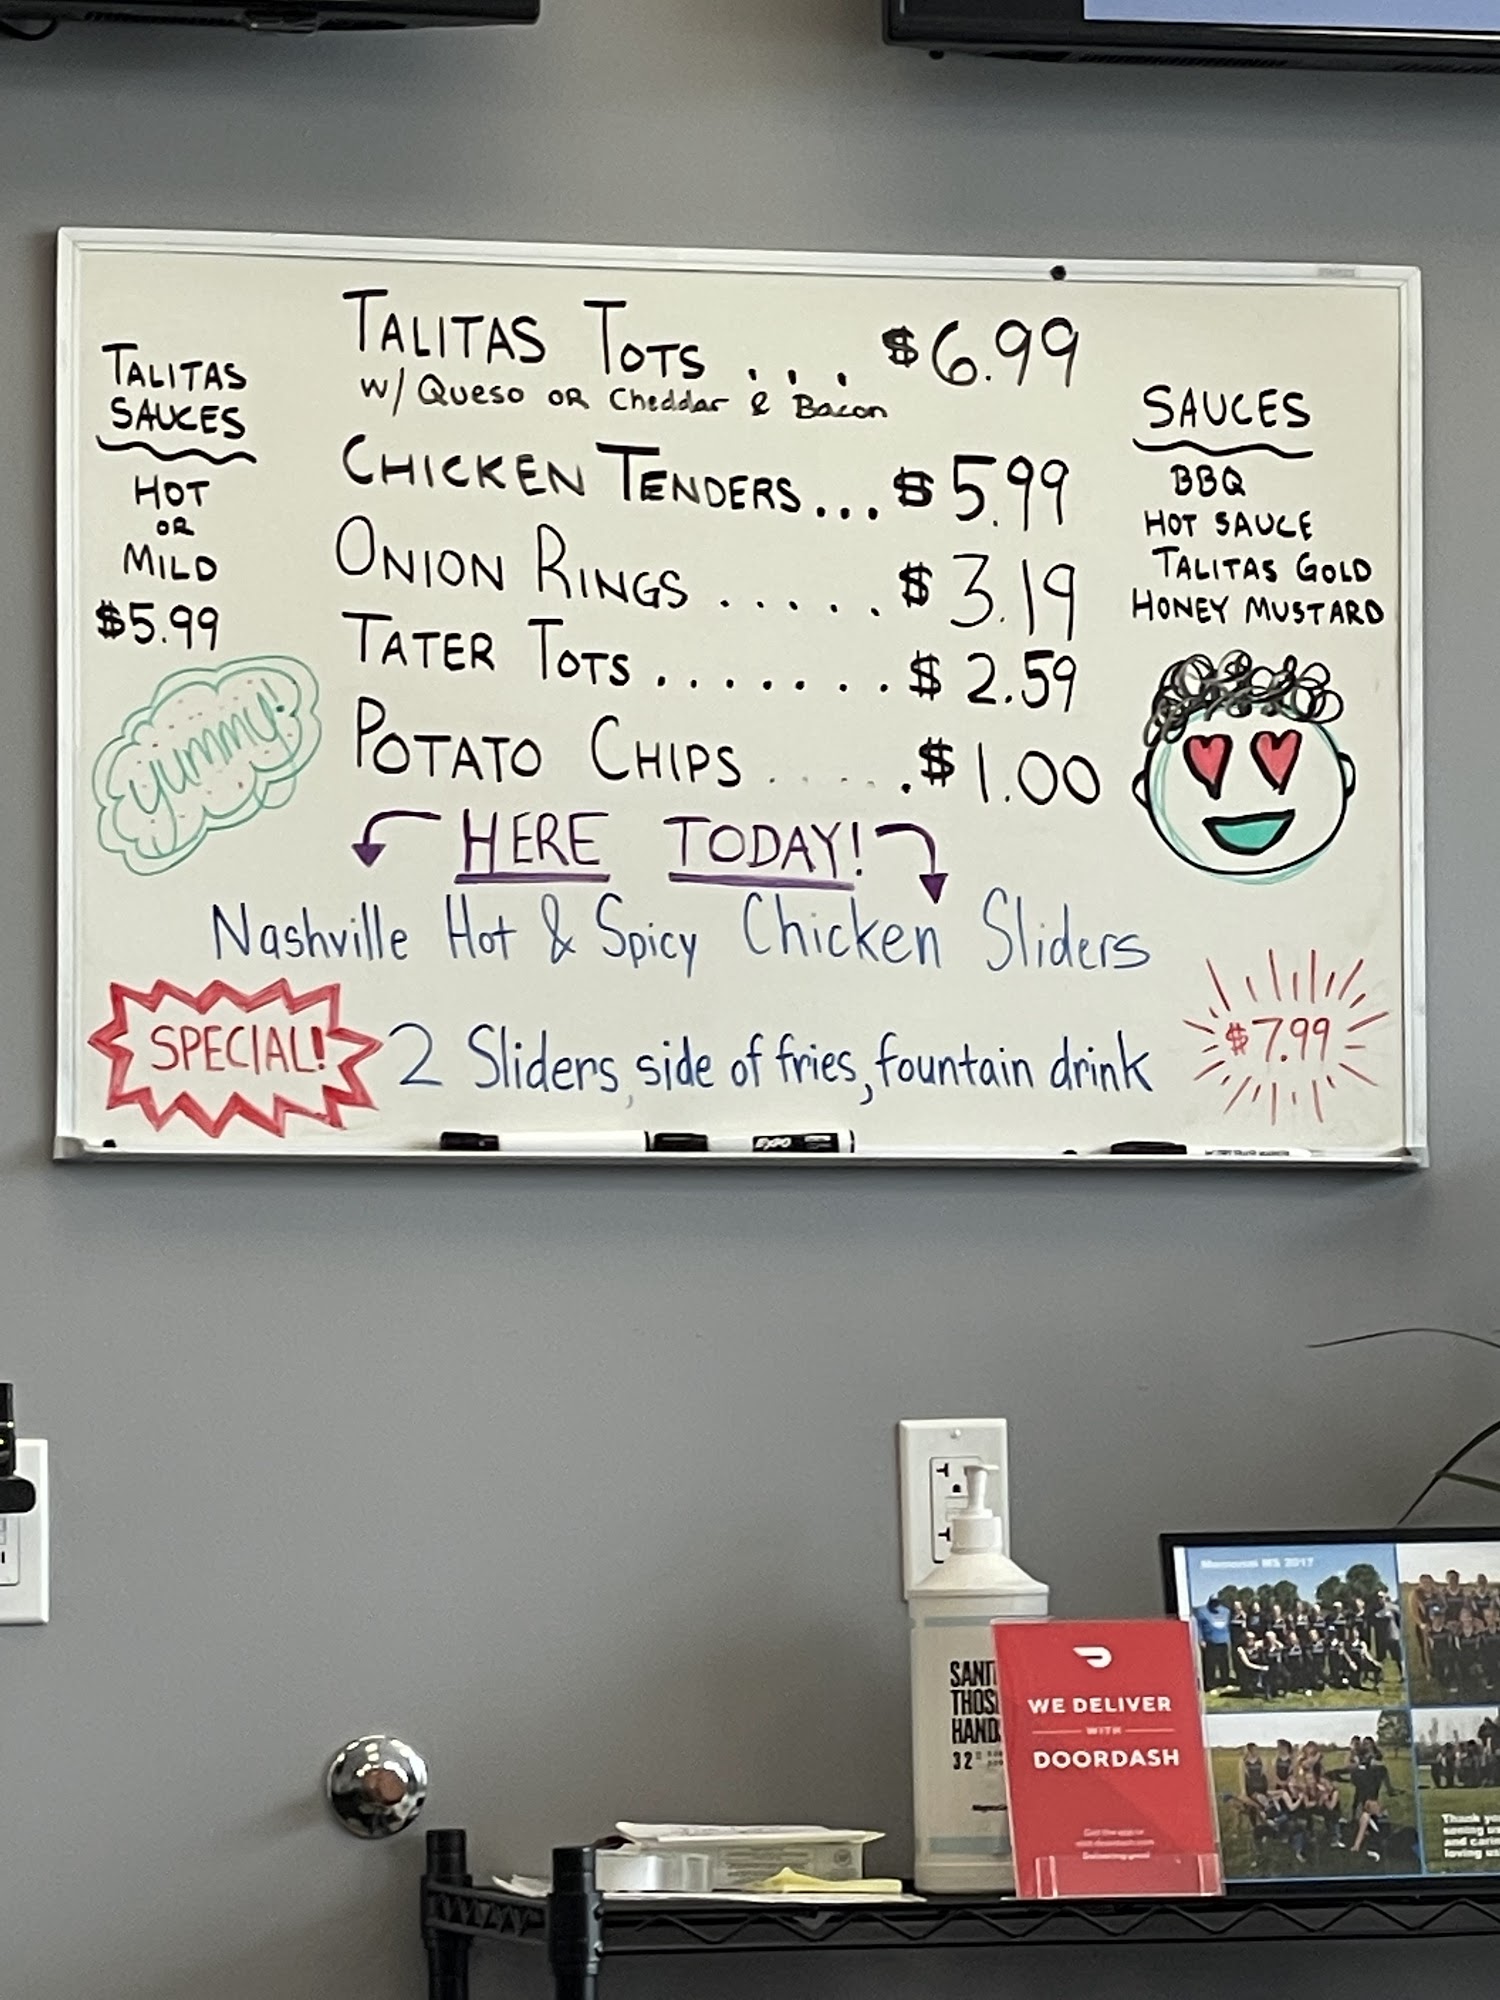 TALITAS SAUCES
HOT
OR
MILD
$5.99
yummy!
TALITAS TOTS . . . $6.99
W/ QUESO OR Cheddar & Bacon
CHICKEN TENDERS... $5.99
ONION RINGS ..... $3.19
TATER TOTS ....... $2.59
POTATO CHIPS ..... $1.00
SAUCES
BBQ
HOT SAUCE
TALITAS GOLD
HONEY MUSTARD
HERE TODAY!
Nashville Hot & Spicy Chicken Sliders
SPECIAL! 2 Sliders, side of fries, fountain drink $7.99
EXPO
Memorial MS 2017
SANI
THOS
HAND
32
WE DELIVER
WITH
DOORDASH
Thank yo